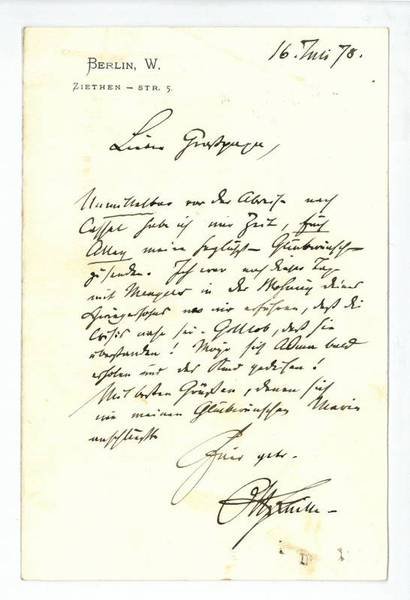 BERLIN, W.
ZIETHEN – STR. 5.
16. Juli 78.
Lieber Großpapa,
Unmittelbar vor der Abreise nach
Cassel habe ich nur Zeit, Euch
Allen meine herzlichsten Glückwünsche
zu senden. Ich war noch dieser Tage
mit in der Wohnung Deines
Schwiegersohnes wo wir erfuhren, daß die
Crisis nahe sei. Gottlob, daß sie
überstanden! Möge sich Anna bald
erholen und das Kind gedeihen!
Mit besten Grüßen, denen sich
wie meinen Glückwünschen Marie
anschließt
Euer getr.